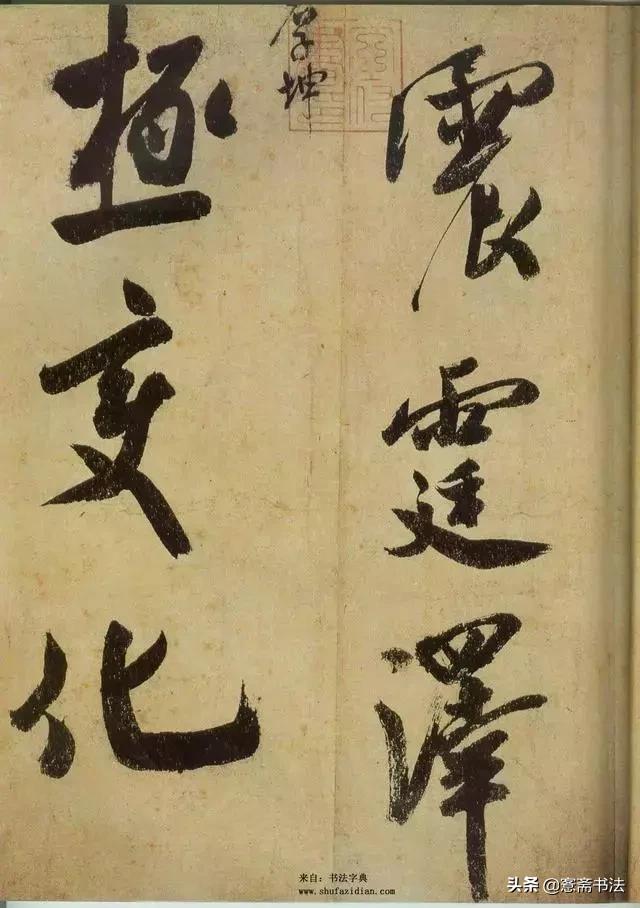 震霆澤
厚坤
極变化
来自：书法字典
www.shufazidian.com
头条 @窓斋书法